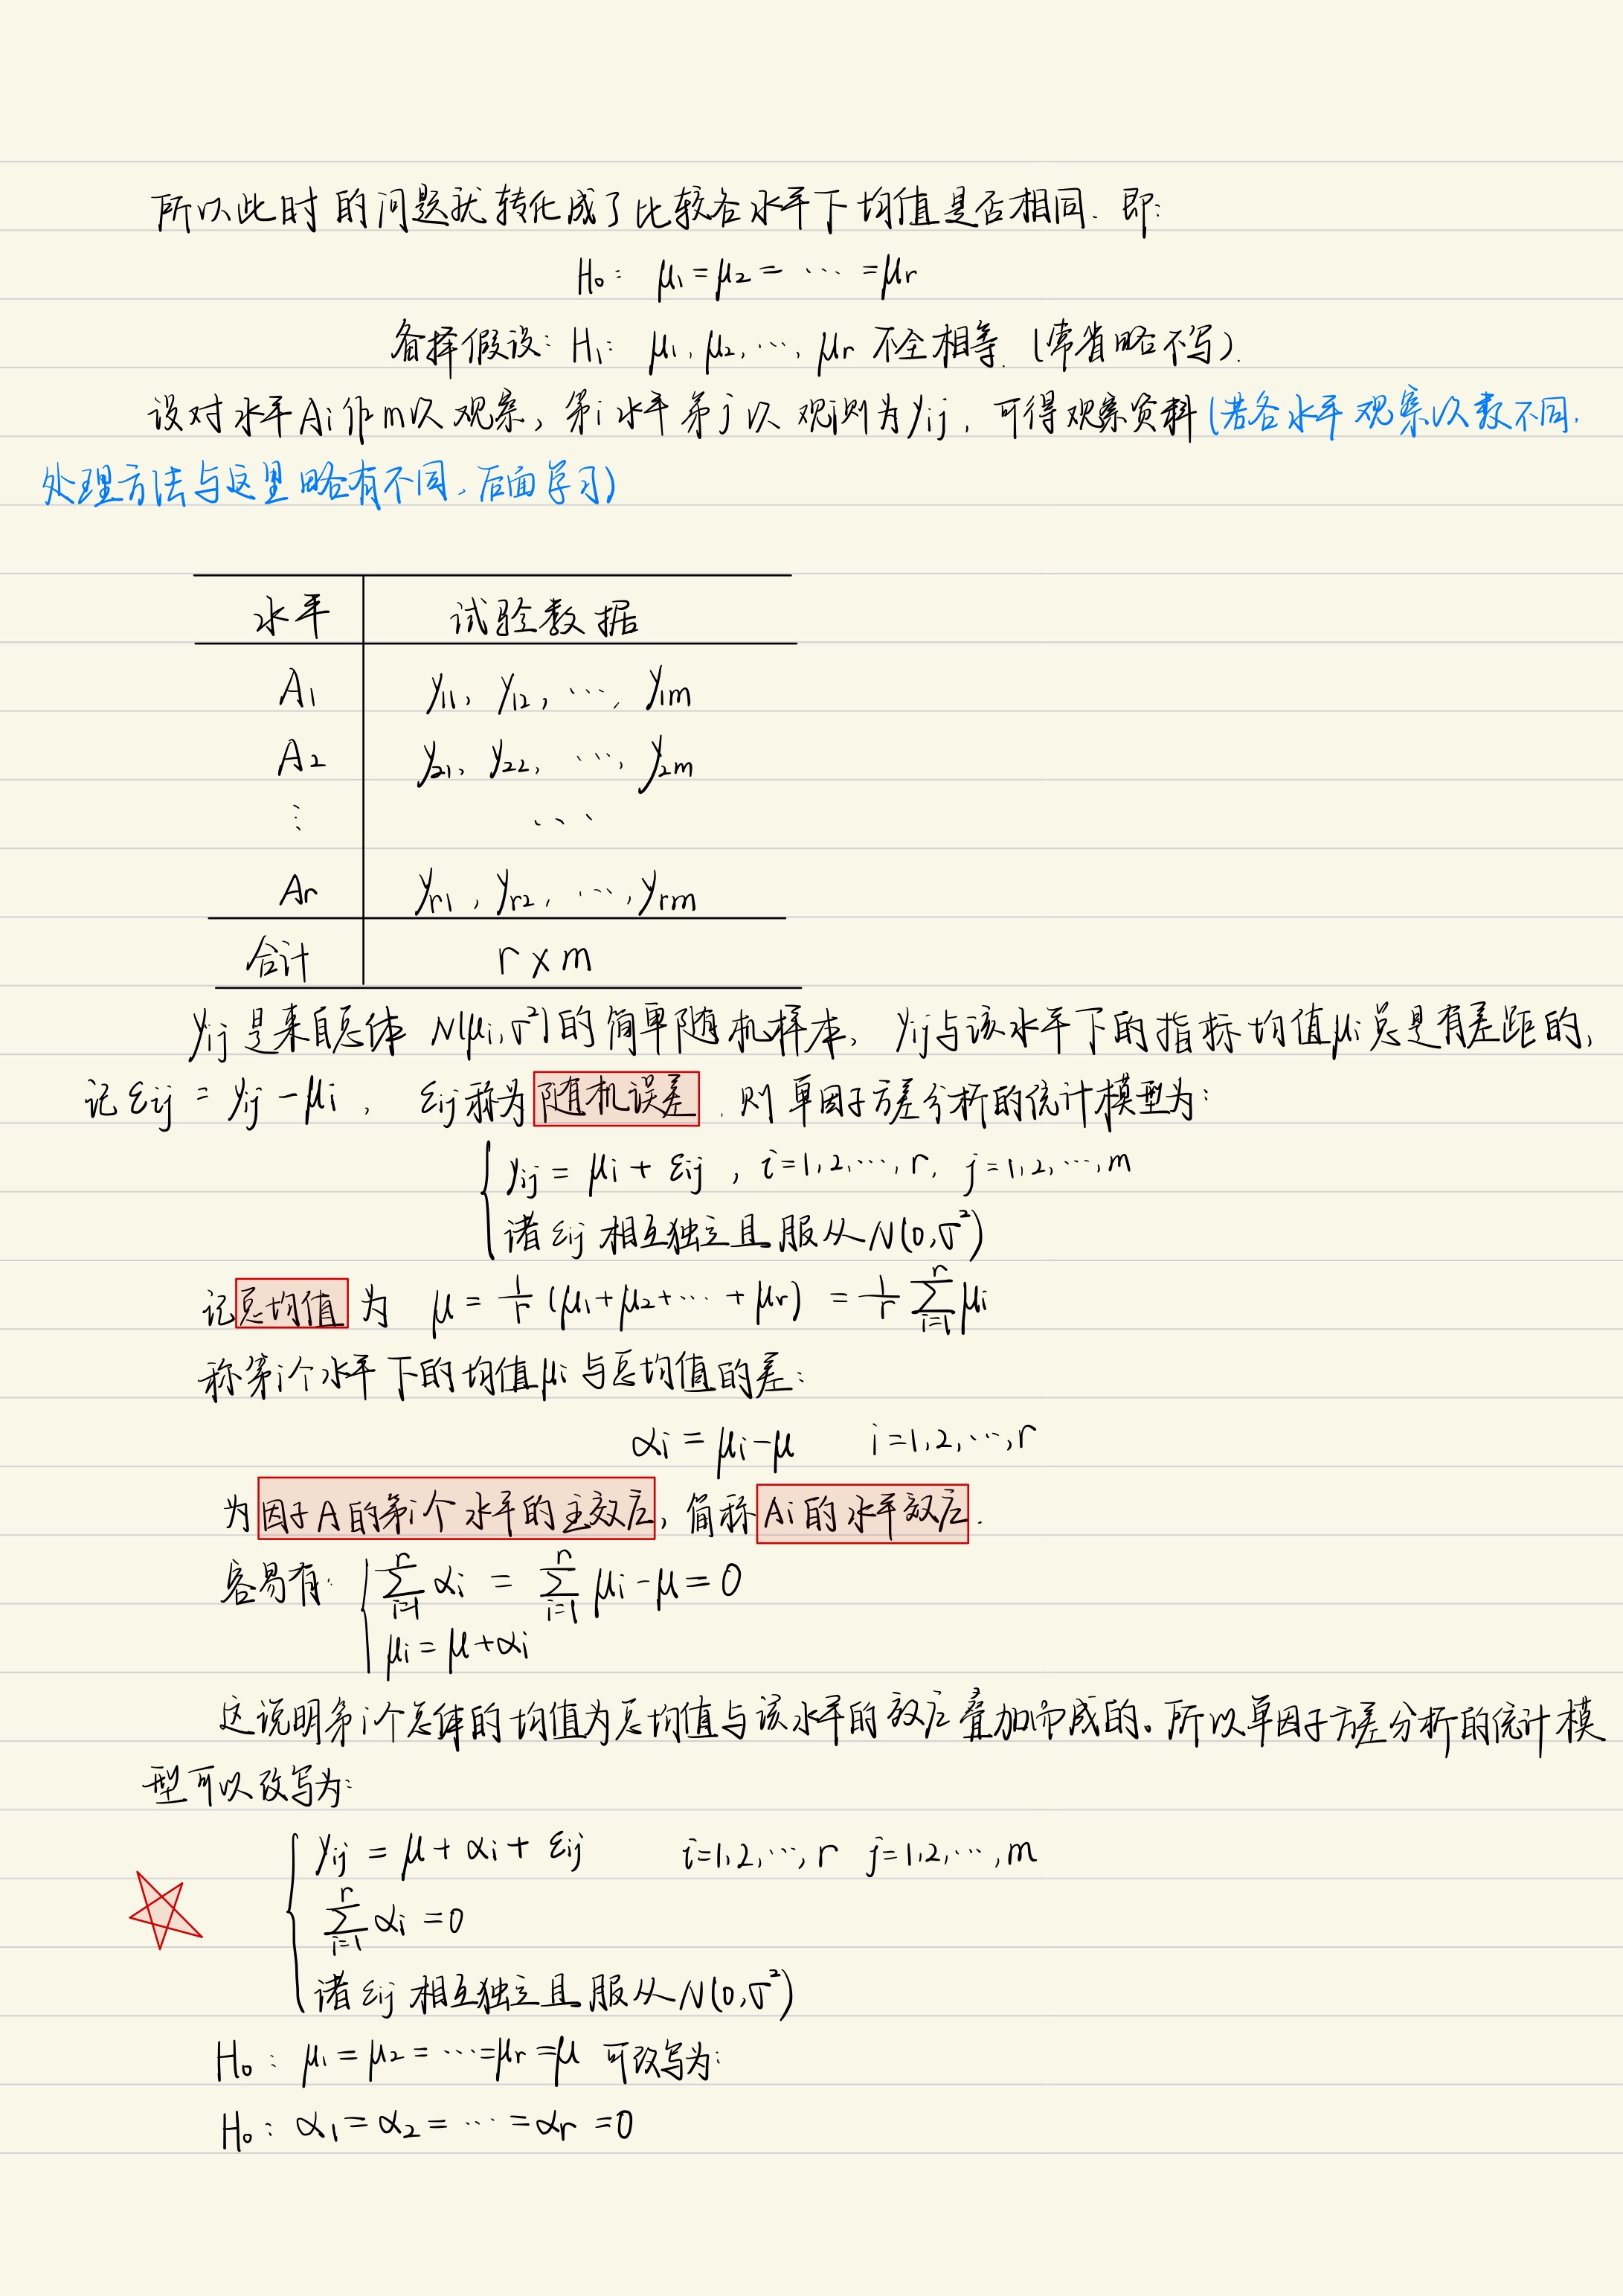 所以此时的问题就转化成了比较各水平下均值是否相同. 即:
H₀: μ₁=μ₂=⋯=μr
备择假设: H₁: μ₁, μ₂, ⋯, μr 不全相等. (常省略不写).
设对水平Ai作m次观察, 第i水平第j次观测为yij, 可得观察资料(若各水平观察次数不同.
处理方法与这里略有不同, 后面学习)
水平 试验数据
A₁ y₁₁, y₁₂, ⋯, y₁m
A₂ y₂₁, y₂₂, ⋯, y₂m
⋮ ⋯
Ar yr₁, yr₂, ⋯, yrm
合计 r×m
yij是来自总体 N(μi,σ²)的简单随机样本, yij与该水平下的指标均值μi总是有差距的,
记 εij = yij-μi, εij称为随机误差. 则单因子方差分析的统计模型为:
yij = μi + εij, i=1,2,⋯,r, j=1,2,⋯,m
诸εij相互独立且服从N(0,σ²)
记总均值为 μ = 1/r (μ₁+μ₂+⋯+μr) = 1/r ∑_{i=1}^{r} μi
称第i个水平下的均值μi与总均值的差:
αi = μi-μ i=1,2,⋯,r
为因子A的第i个水平的主效应, 简称Ai的水平效应.
容易有: ∑_{i=1}^{r} αi = ∑_{i=1}^{r} μi-μ=0
μi=μ+αi
这说明第i个总体的均值为总均值与该水平的效应叠加而成的。所以单因子方差分析的统计模
型可以改写为:
yij = μ + αi + εij i=1,2,⋯,r j=1,2,⋯,m
∑_{i=1}^{r} αi =0
诸εij相互独立且服从N(0,σ²)
H₀: μ₁=μ₂=⋯=μr=μ 可改写为:
H₀: α₁=α₂=⋯=αr=0